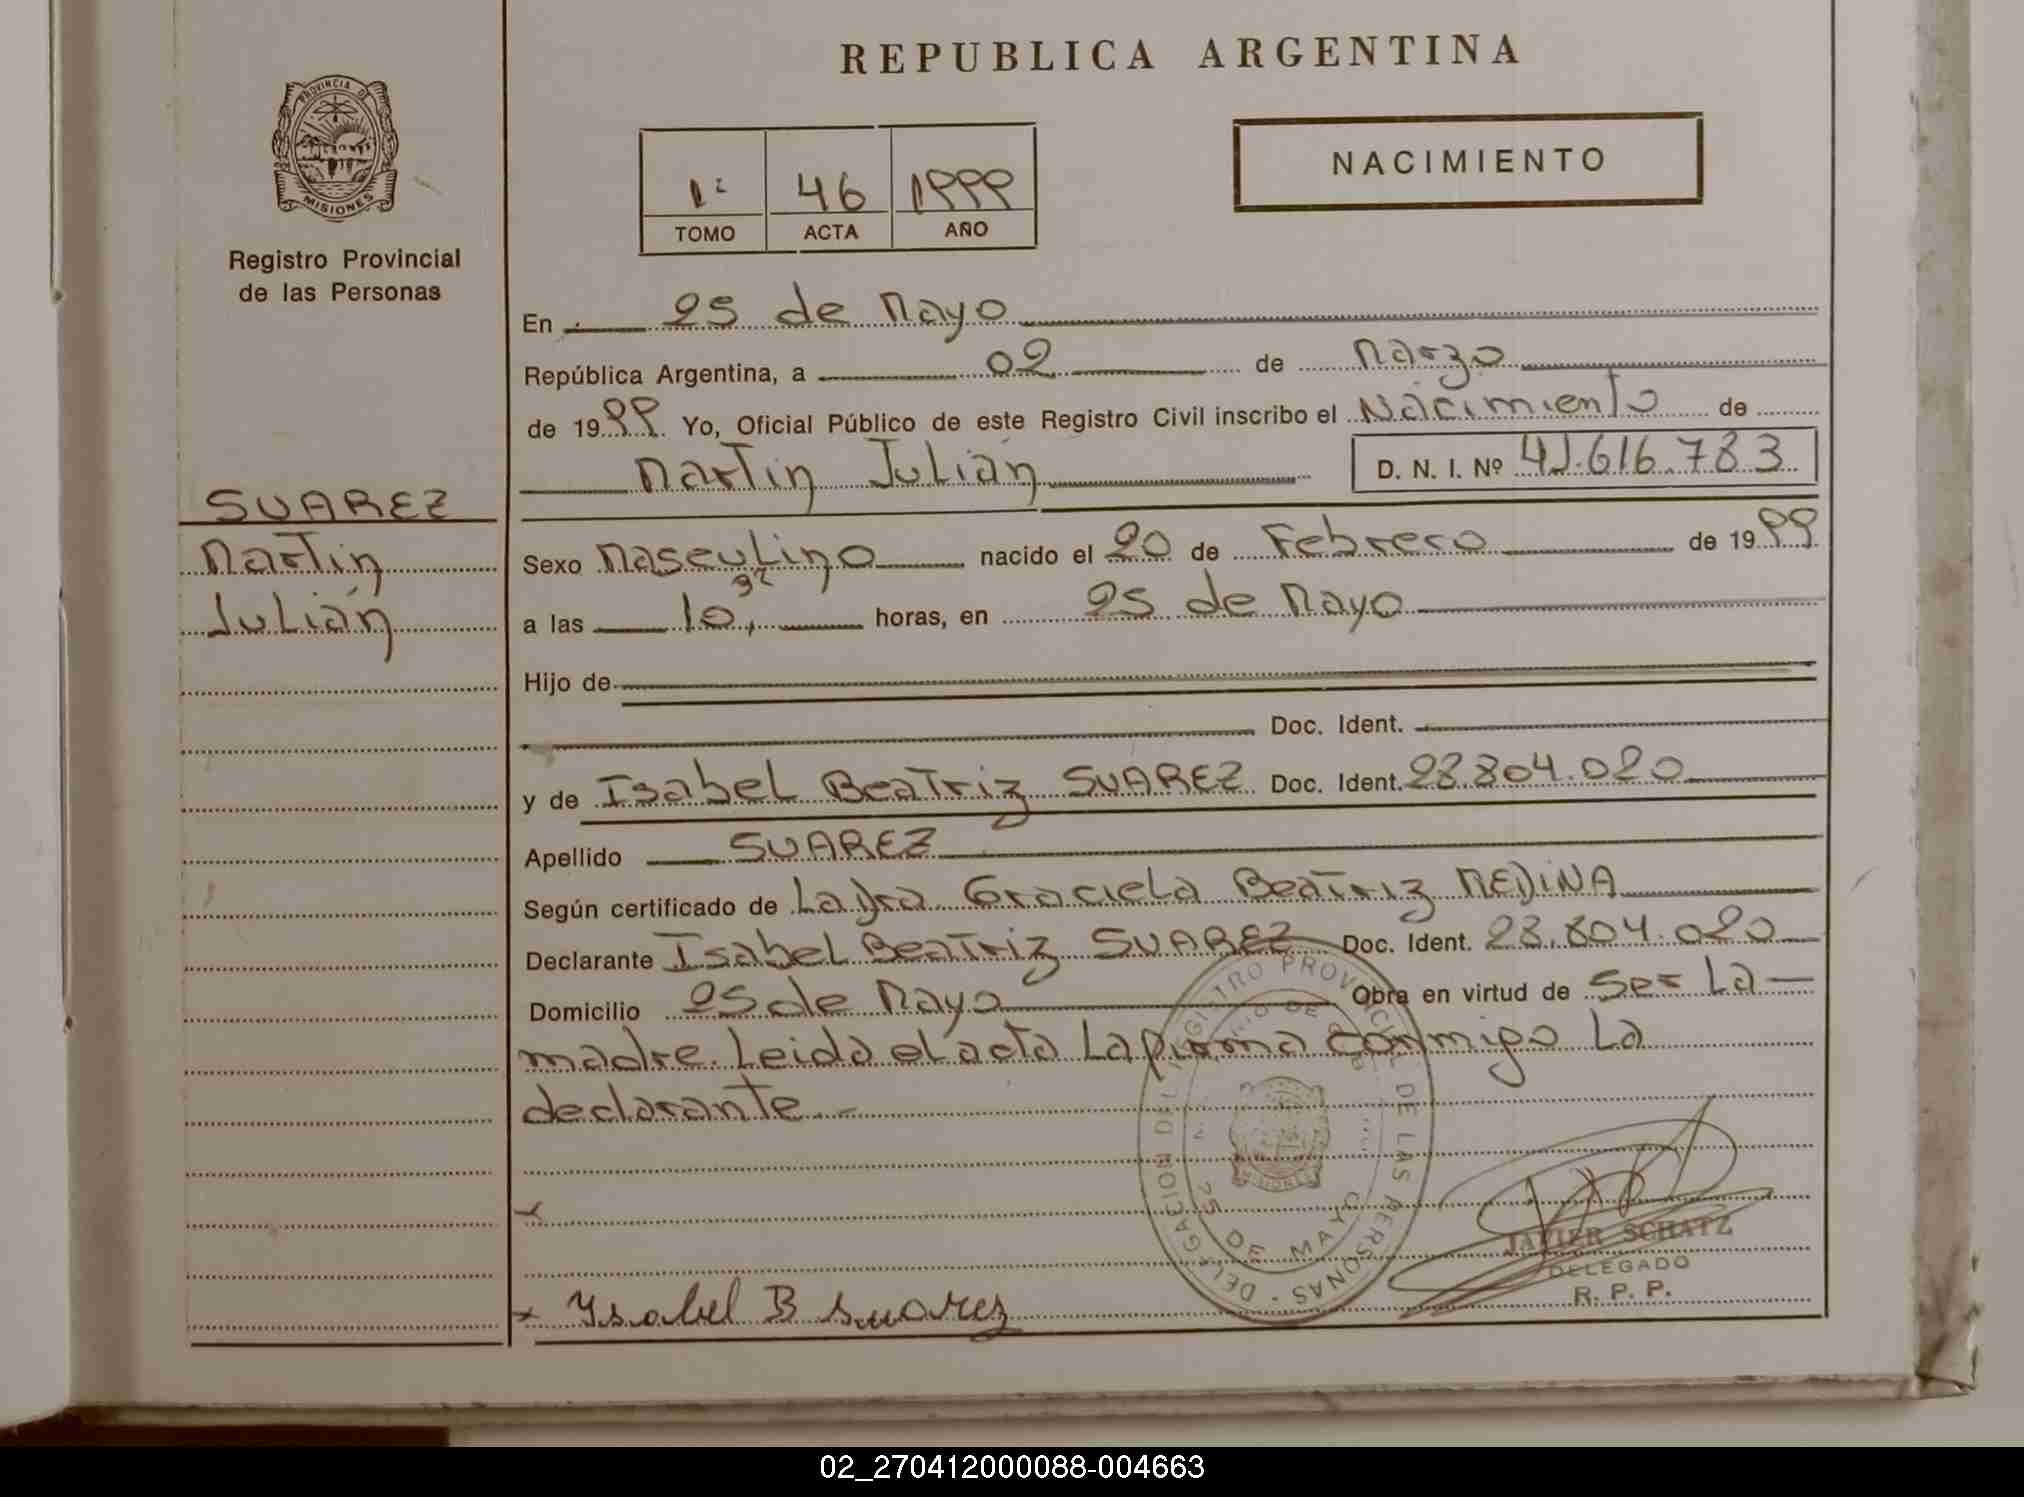 REPUBLICA ARGENTINA
PROVINCIA DE
MISIONES
Registro Provincial
de las Personas
1º 46 1999
TOMO ACTA AÑO
NACIMIENTO
En 25 de Mayo
República Argentina, a 02 de Marzo
de 1999 Yo, Oficial Público de este Registro Civil inscribo el Nacimiento de
Martín Julián D. N. I. Nº 41.616.783
SUAREZ
Martín
Julián
Sexo Masculino nacido el 20 de Febrero de 1999
a las 10, horas, en 25 de Mayo
Hijo de
Doc. Ident.
y de Isabel Beatriz SUAREZ Doc. Ident. 28.804.020
Apellido SUAREZ
Según certificado de La Dra. Graciela Beatriz MEDINA
Declarante Isabel Beatriz SUAREZ Doc. Ident. 28.804.020
Domicilio 25 de Mayo Obra en virtud de Ser La
madre. Leida el acta La firma conmigo La
declarante.-
DELEGACION DEL REGISTRO PROVINCIAL DE LAS PERSONAS
25 DE MAYO
MISIONES
JAVIER SCHATZ
DELEGADO
R. P. P.
x
x Ysabel B Suarez
02_270412000088-004663